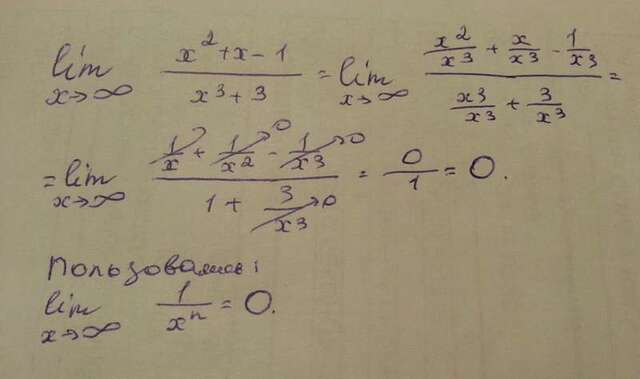 lim x→∞ (x² + x − 1)/(x³ + 3) = lim x→∞ (x²/x³ + x/x³ − 1/x³)/(x³/x³ + 3/x³) =
= lim x→∞ (1/x + 1/x² →0 − 1/x³ →0)/(1 + 3/x³ →0) = 0/1 = 0.
Пользовались:
lim x→∞ 1/xⁿ = 0.